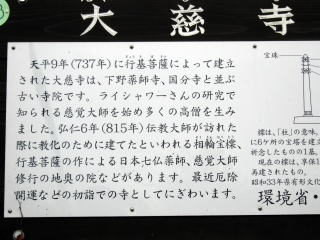 大慈寺
天平9年(737年)に行基菩薩によって建立
された大慈寺は、下野薬師寺、国分寺と並ぶ
古い寺院です。ライシャワーさんの研究で
知られる慈覚大師を始め多くの高僧を生み
ました。弘仁6年(815年)伝教大師が訪れた
際に教化のために建てたといわれる相輪宝橖、
行基菩薩の作による日本七仏薬師、慈覚大師
修行の地奥の院などがあります。最近厄除
開運などの初詣での寺としてにぎわいます。
宝珠
橖は、「柱」の意味、
に6ケ所の宝塔を建立
祈念したもの1基。
現在の橖は、享保1
再建されたもの。
昭和33年県有形文化
環境省・